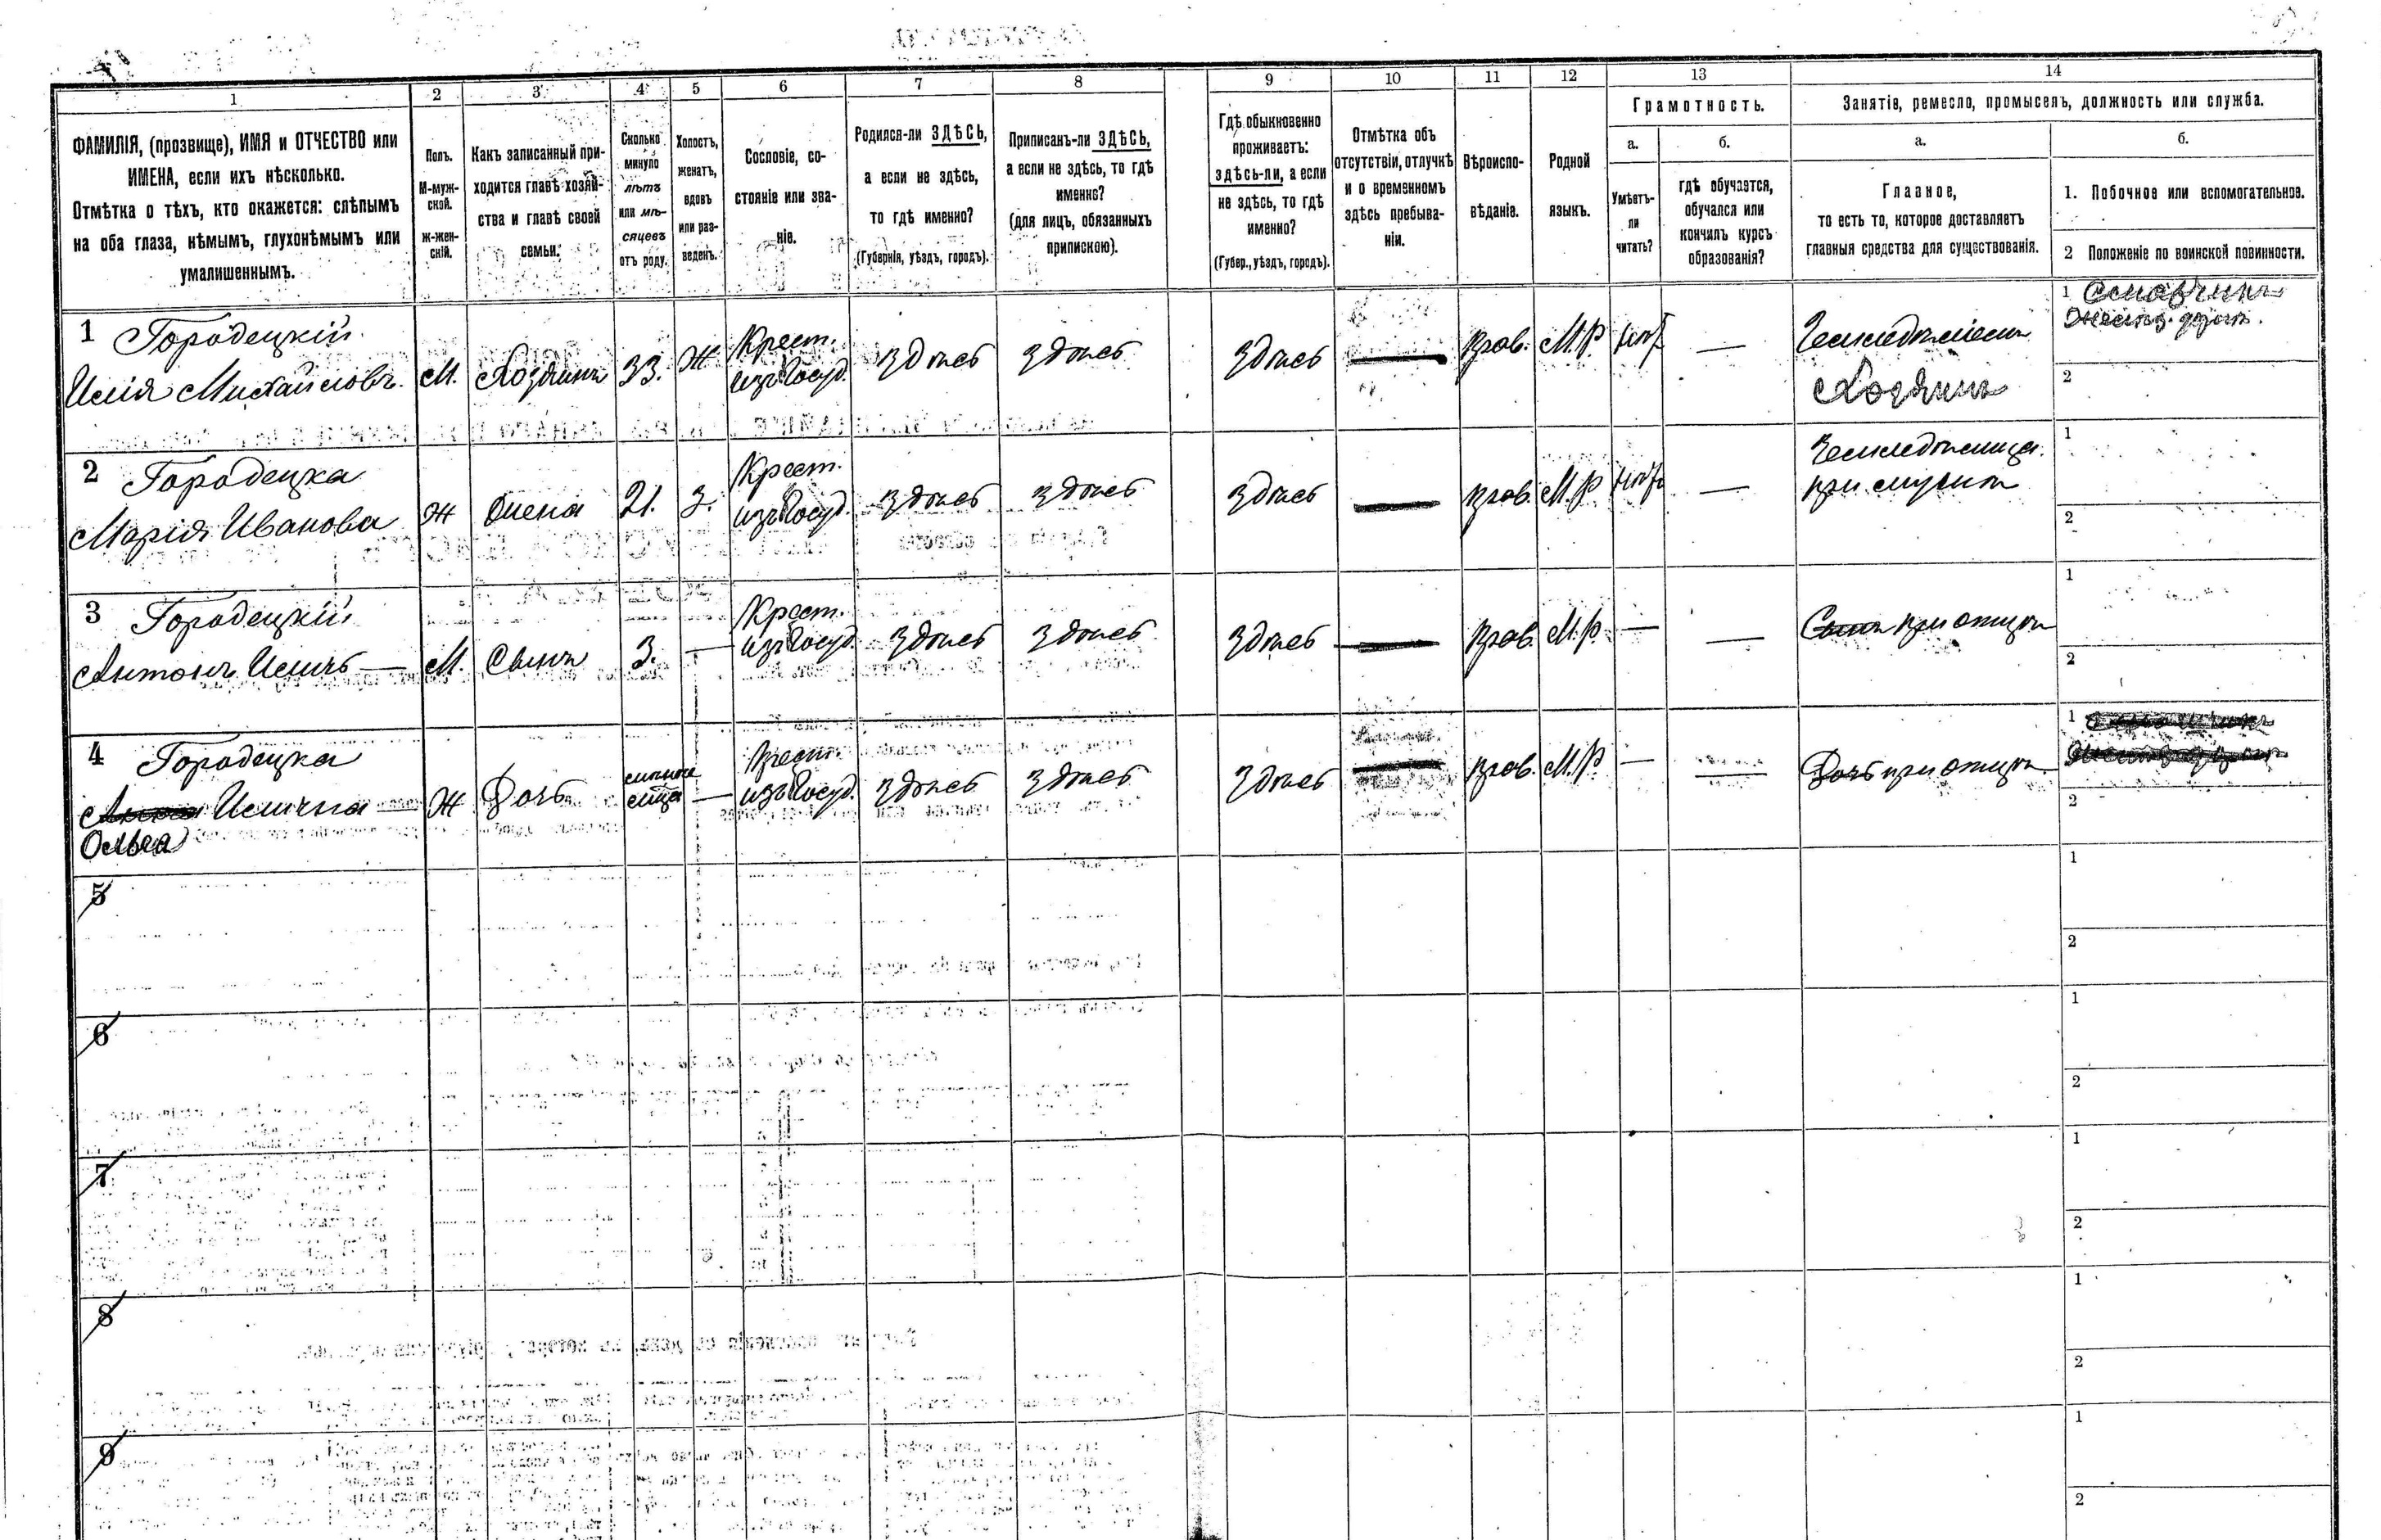 1 2 3 4 5 6 7 8 9 10 11 12 13 14
ФАМИЛІЯ, (прозвище), ИМЯ и ОТЧЕСТВО или
ИМЕНА, если ихъ нѣсколько.
Отмѣтка о тѣхъ, кто окажется: слѣпымъ
на оба глаза, нѣмымъ, глухонѣмымъ или
умалишеннымъ.
Полъ.
М-муж-
ской.
ж-жен-
скій.
Какъ записанный при-
ходится главѣ хозяй-
ства и главѣ своей
семьи.
Сколько
минуло
лѣтъ
или мѣ-
сяцевъ
отъ роду.
Холостъ,
женатъ,
вдовъ
или раз-
веденъ.
Сословіе, со-
стояніе или зва-
ніе.
Родился-ли ЗДѢСЬ,
а если не здѣсь,
то гдѣ именно?
(Губернія, уѣздъ, городъ).
Приписанъ-ли ЗДѢСЬ,
а если не здѣсь, то гдѣ
именно?
(для лицъ, обязанныхъ
припискою).
Гдѣ обыкновенно
проживаетъ:
здѣсь-ли, а если
не здѣсь, то гдѣ
именно?
(Губер., уѣздъ, городъ).
Отмѣтка объ
отсутствіи, отлучкѣ
и о временномъ
здѣсь пребыва-
ніи.
Вѣроиспо-
вѣданіе.
Родной
языкъ.
Грамотность.
а.
Умѣетъ-
ли
читать?
б.
гдѣ обучается,
обучался или
кончилъ курсъ
образованія?
Занятіе, ремесло, промыселъ, должность или служба.
а.
Главное,
то есть то, которое доставляетъ
главныя средства для существованія.
б.
1. Побочное или вспомогательное.
2 Положеніе по воинской повинности.
1 Городецкій
Илія Михайловъ
М.
Хозяинъ
33.
Ж
Крест.
изъ Госуд.
Здѣсь
Здѣсь
Здѣсь
—
Прав.
М.Р.
нѣт
—
Земледѣлецъ
Хозяинъ
1
2
2 Городецка
Марія Иванова
Ж
Жена
21.
З.
Крест.
изъ Госуд.
Здѣсь
Здѣсь
Здѣсь
—
Прав.
М.Р
нѣт
—
Земледѣлица
при мужѣ
1
2
3 Городецкій
Антонъ Ильичъ
М.
Сынъ
3.
—
Крест.
изъ Госуд.
Здѣсь
Здѣсь
Здѣсь
—
Прав.
М.Р.
—
—
Сынъ при отцѣ
1
2
4 Городецка
Ильична
Ольга
Ж
Дочь
—
Крест.
изъ Госуд.
Здѣсь
Здѣсь
Здѣсь
—
Прав.
М.Р
—
—
Дочь при отцѣ
1
2
5
1
2
6
1
2
7
1
2
8
1
2
9
1
2